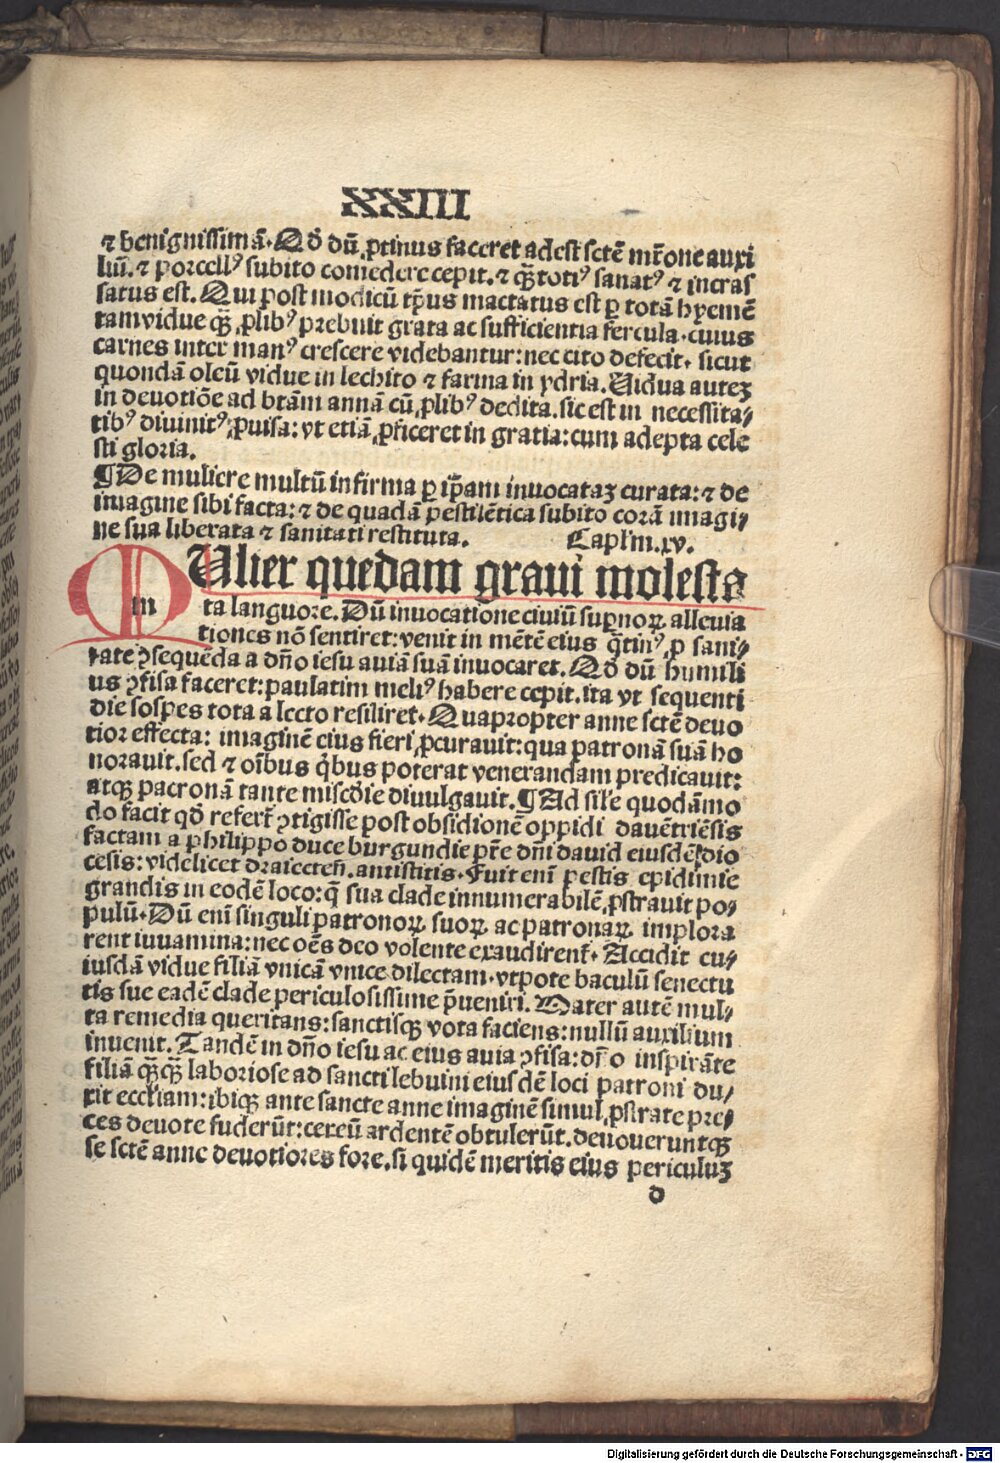 XXIII
⁊ benignissimā. Qđ dū ꝓtinus faceret adest sctē mr̄one auxi
liū. ⁊ porcellꝰ subito comedere cepit. ⁊ qꝫ̄ totiꝰ sanatꝰ ⁊ incras
satus est. Qui post modicū tp̄us mactatus est ꝑ totā hyemē
tam vidue qꝫ̄ ꝓlibꝰ prebuit grata ac sufficientia fercula. cuius
carnes inter manꝰ crescere videbantur: nec cito defecit. sicut
quondā oleū vidue in lechito ⁊ farina in ydria. Uidua auteꝫ
in deuotiōe ad btām annā cū ꝓlibꝰ dedita. sic est in necessita⸗
tibꝰ diuinitꝰ ꝓuisa: vt etiā ꝓficeret in gratia: cum adepta cele
sti gloria.
¶ De muliere multū infirma ꝑ ip̄am inuocataꝫ curata: ⁊ de
imagine sibi facta: ⁊ de quadā pestilētica subito corā imagi⸗
ne sua liberata ⁊ sanitati restituta. Capl'm. xv.
m Ulier quedam graui molesta
ta languore. Dū inuocatione ciuiū supnoꝝ alleuia
tiones nō sentiret: venit in mētē eius q̄tinꝰ ꝓ sani⸗
tate ꝯsequēda a dn̄o iesu auiā suā inuocaret. Qđ dū humili
us ꝯfisa faceret: paulatim meliꝰ habere cepit. ita vt sequenti
die sospes tota a lecto resiliret. Quapropter anne sctē deuo
tior effecta: imaginē eius fieri ꝓcurauit: qua patronā suā ho
norauit. sed ⁊ oībus qͥbus poterat venerandam predicauit:
atqꝫ patronā tante miscđie diuulgauit. ¶ Ad sil'e quodāmo
do facit qđ refert̄ ꝯtigisse post obsidionē oppidi dauētriēsis
factam a philippo duce burgundie pr̄e dn̄i dauid eiusdē dio
cesis: videlicet draiecteñ. antistitis. Fuit enī pestis epidimie
grandis in eodē loco: q̄ sua clade innumerabilē ꝓstrauit po⸗
pulū. Dū enī singuli patronoꝝ suoꝝ ac patronaꝝ implora
rent iuuamina: nec oēs deo volente exaudirent̄. Accidit cu⸗
iusdā vidue filiā vnicā vnice dilectam. vtpote baculū senectu
tis sue eadē clade periculosissime p̄ueniri. Mater autē mul⸗
ta remedia queritans: sanctisqꝫ vota faciens: nullū auxilium
inuenit. Tandē in dn̄o iesu ac eius auia ꝯfisa: dn̄o inspirāte
filiā qꝫ̄qꝫ̄ laboriose ad sancti lebuini eiusdē loci patroni du⸗
xit eccl'iam: ibiqꝫ ante sancte anne imaginē simul ꝓstrate pre⸗
ces deuote fuderūt: cereū ardentē obtulerūt. deuoueruntqꝫ
se sctē anne deuotiores fore. si quidē meritis eius periculuꝫ
d
Digitalisierung gefördert durch die Deutsche Forschungsgemeinschaft - DFG